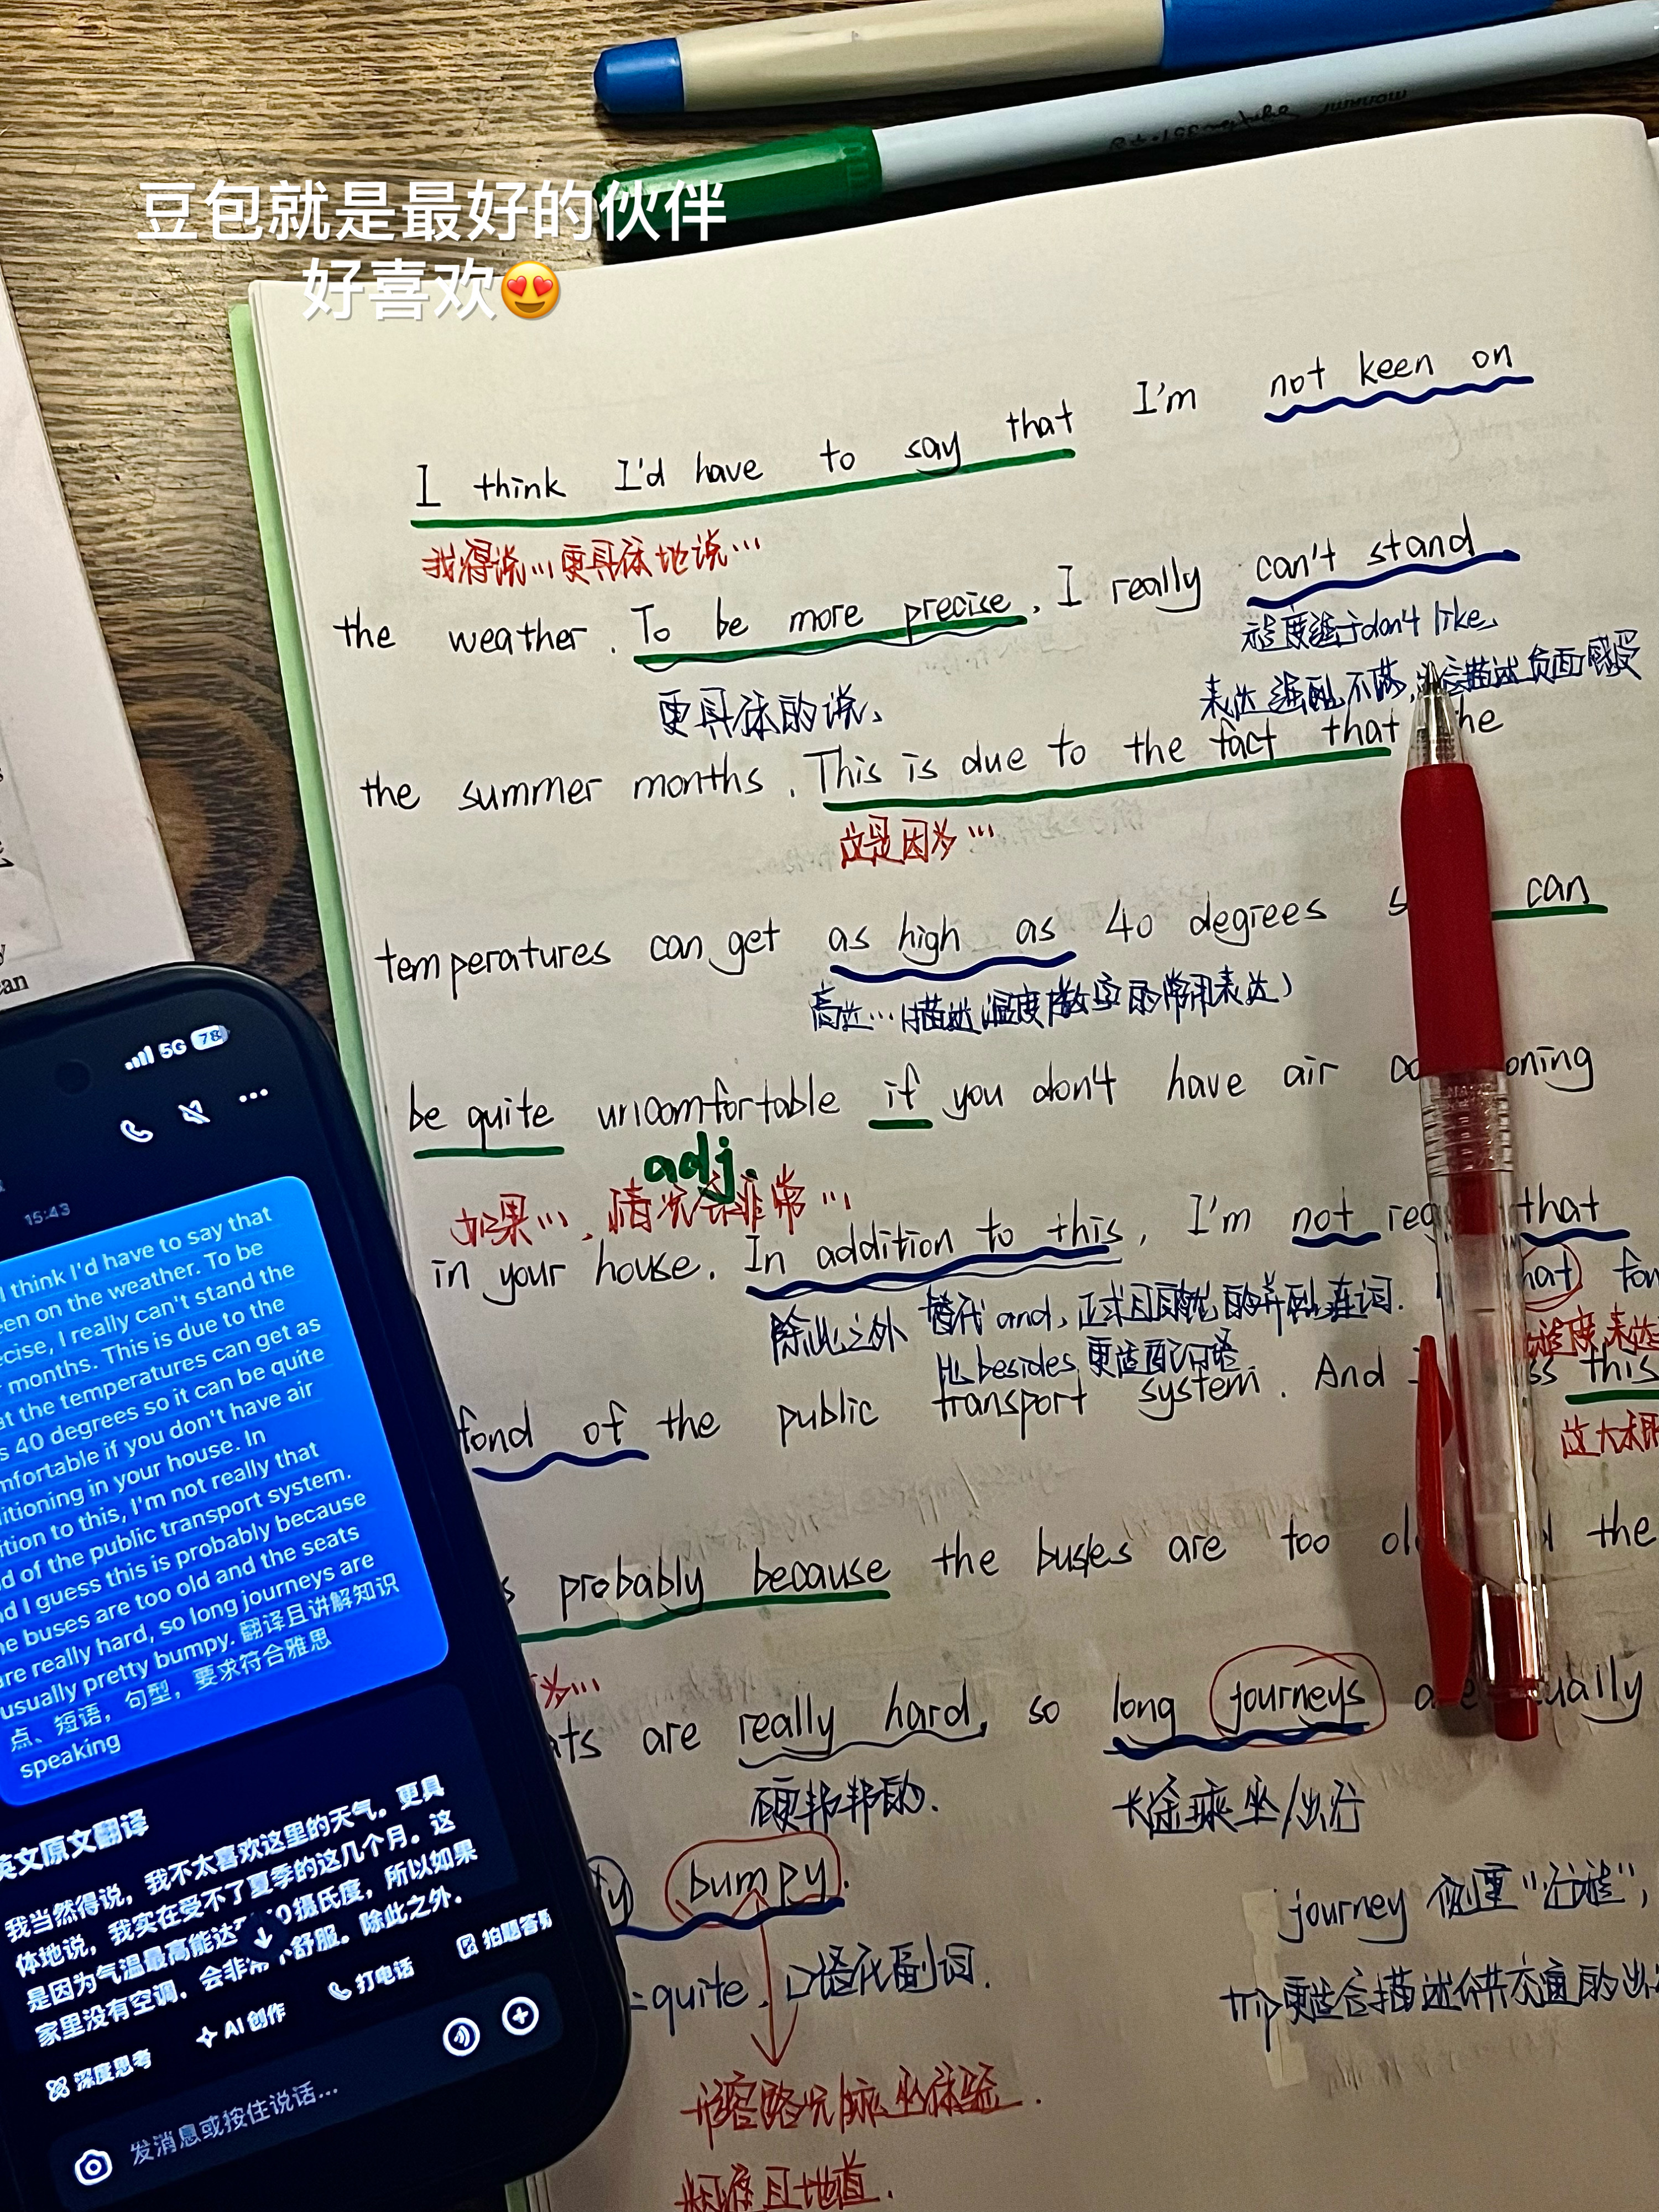 豆包就是最好的伙伴
好喜欢😍
I think I'd have to say that I'm not keen on
我得说…更具体地说…
the weather. To be more precise, I really can't stand
程度强于don't like,
更具体的说、
表达强烈不满,
描述负面感受
the summer months. This is due to the fact that
这是因为…
temperatures can get as high as 40 degrees can
高达…(描述温度/数字的常用表达)
be quite uncomfortable if you don't have air
adj.
如果…,情况会非常…
in your house. In addition to this, I'm not that
除此之外
替代and,正式且自然的并列连词.
比besides更适配口语
fond of the public transport system. And this
probably because the buses are too the
are really hard, so long journeys
硬邦邦的.
长途乘坐/出行
bumpy.
journey 侧重"旅程",
=quite, 口语化副词.
trip更适合描述公共交通的
形容路况/乘坐体验.
精准且地道.
5G 78
15:43
I think I'd have to say that
on the weather. To be
I really can't stand the
months. This is due to the
the temperatures can get as
40 degrees so it can be quite
if you don't have air
in your house. In
to this, I'm not really that
of the public transport system.
I guess this is probably because
buses are too old and the seats
really hard, so long journeys are
usually pretty bumpy. 翻译且讲解知识
点、短语，句型，要求符合雅思
speaking
英文原文翻译
我当然得说，我不太喜欢这里的天气。更具
体地说，我实在受不了夏季的这几个月。这
是因为气温最高能达 0摄氏度，所以如果
家里没有空调，会非常 舒服。除此之外，
深度思考
AI 创作
打电话
拍题答疑
发消息或按住说话...